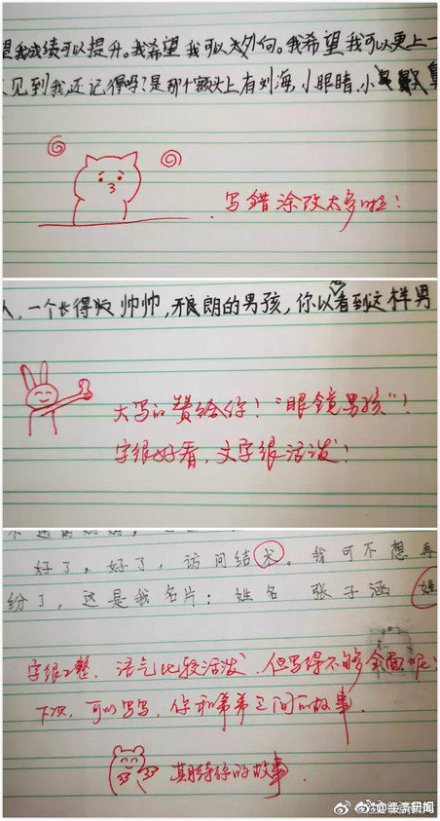 我成绩可以提升。我希望我可以太外向。我希望我可以更上一
见到我,还记得吗?是那个额头上有刘海,小眼睛,小
写错涂改太多啦!
人,一个长得 帅帅,开朗的男孩,你以 看到这样男
大写的赞给你!“眼镜男孩”!
字很好看,文字很活泼!
好了,好了,访问结术。我可不想再
纷了,这是我名片:姓名 张子涵 姓
字很工整,语气比较活泼,但写得不够全面呢!
下次,可以写写,你和弟弟之间的故事。
期待你的故事。